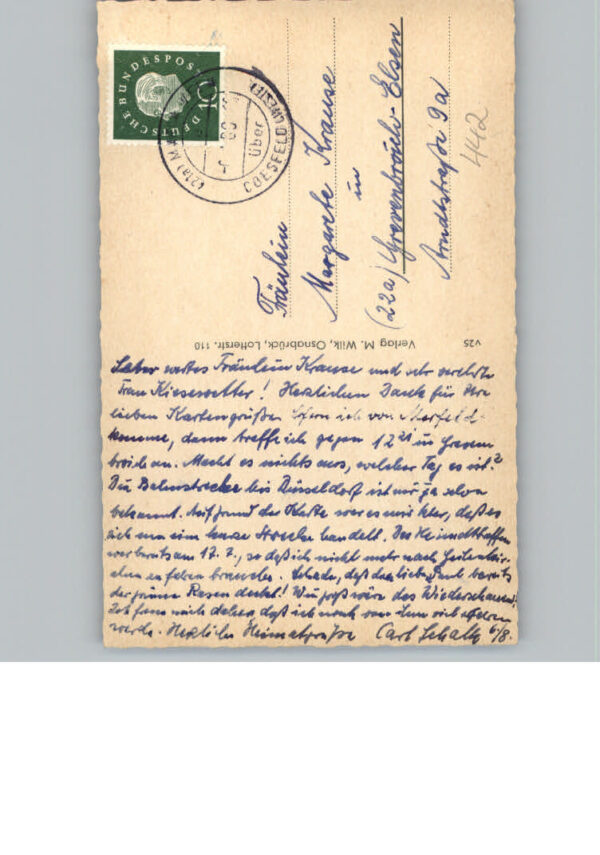 DEUTSCHE BUNDESPOST
10
(21a) M
über
COESFELD (WESTF)
Fräulein
Margarete Krause
in
(22a) Grevenbroich-Elsen
Arndtstraße 9a
442
Verlag M. Wilk, Osnabrück, Lotterstr. 110
v25
Sehr wertes Fräulein Krause und sehr verehrte
Frau Kiesewetter! Herzlichen Dank für Ihre
lieben Kartengrüße. Sofern ich von Merfeld
komme, dann treffe ich gegen 17 21 in Greven
broich an. Macht es nichts aus, welcher Tag es ist?
Die Bahnstrecke bis Düsseldorf ist mir ja schon
bekannt. Auf Grund der Karte war es mir klar, daß es
sich um eine kurze Strecke handelt. Das Heimattreffen
war bereits am 17. 7., so daß ich nicht mehr nach
zu fahren brauche. Schade, daß den lieben Paul bereits
der grüne Rasen deckt! Wie groß wäre das Wiederschauen!
Ich freue mich daß ich noch von ihm viel
werde. Herzliche Heimatgrüße Carl Schalk 6/8.